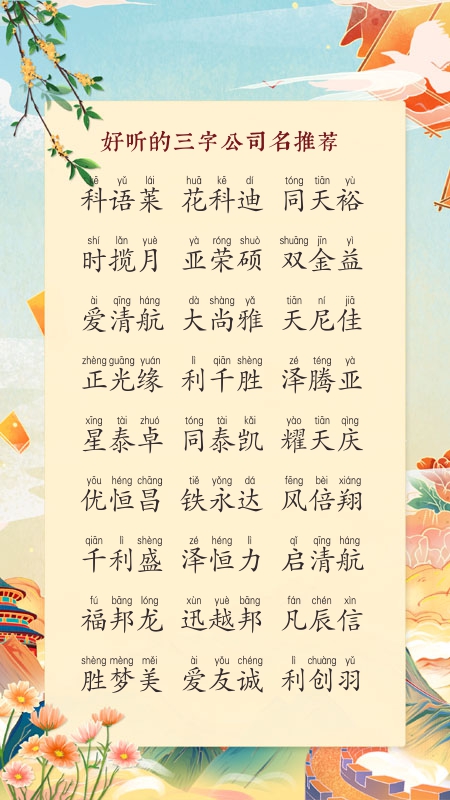 好听的三字公司名推荐
kē yǔ lái huā kē dí tóng tiān yù
科语莱 花科迪 同天裕
shí lǎn yuè yà róng shuò shuāng jīn yì
时揽月 亚荣硕 双金益
ài qīng háng dà shàng yǎ tiān ní jiā
爱清航 大尚雅 天尼佳
zhèng guāng yuán lì qiān shèng zé téng yà
正光缘 利千胜 泽腾亚
xīng tài zhuó tóng tài kǎi yào tiān qìng
星泰卓 同泰凯 耀天庆
yōu héng chāng tiě yǒng dá fēng bèi xiáng
优恒昌 铁永达 风倍翔
qiān lì shèng zé héng lì qǐ qīng háng
千利盛 泽恒力 启清航
fú bāng lóng xùn yuè bāng fán chén xìn
福邦龙 迅越邦 凡辰信
shèng mèng měi ài yǒu chéng lì chuàng yǔ
胜梦美 爱友诚 利创羽